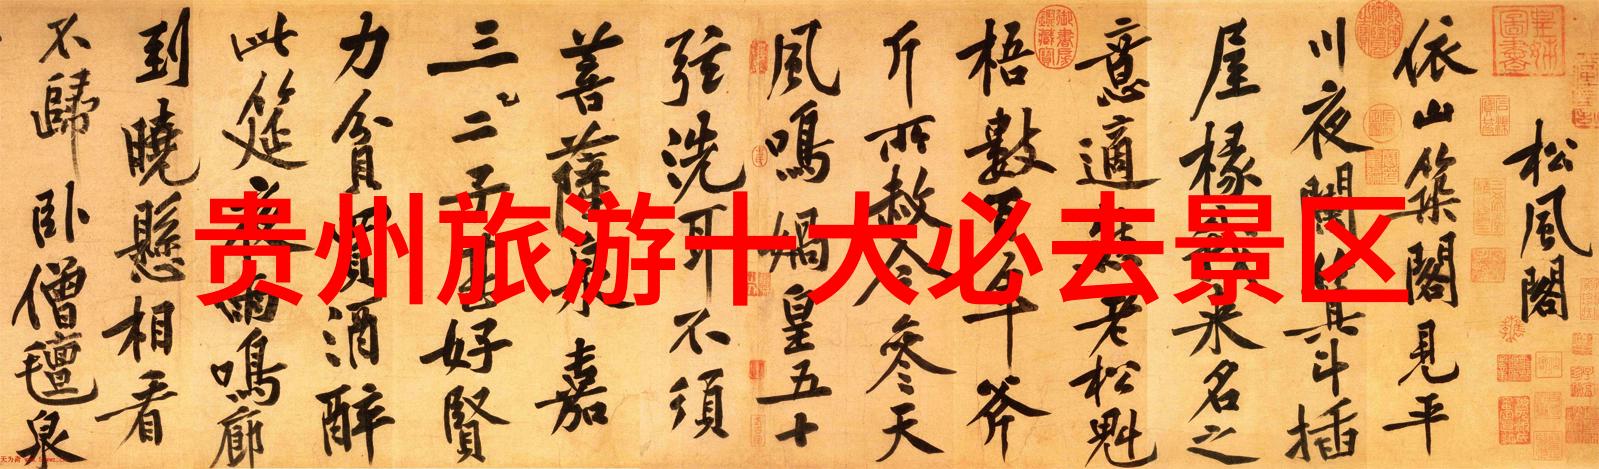 贵州旅游十大必去景区
松風閣
依山築閣見平
川夜闌箕斗插
屋椽我来名之
意適然老松魁
梧數百年斧
斤所赦今参天
風鳴媧皇五十
弦洗耳不須
菩薩泉嘉
三二子甚好賢
力貧買酒醉
此筵夜雨鳴廊
到曉懸相看
不歸卧僧氊泉